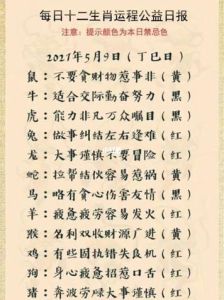 每日十二生肖运程公益日报
注意：提示颜色为本日禁忌色
2021年5月9日（丁巳日）
鼠：不要贪财物惹事非（黄）
牛：适合交际勤奋努力（黑）
虎：能力非凡万众瞩目（黑）
兔：做事纠结左右逢难（红）
龙：大事谨慎不要冒险（红）
蛇：拉帮结伙容易惹祸（黄）
马：略有贪心伤害友情（黑）
羊：疲惫疲劳容易发火（黄）
猴：名利双收财源广进（黄）
鸡：有些固执错失良机（红）
狗：身心疲惫招惹口舌（红）
猪：奔波劳碌大事谨慎（红）